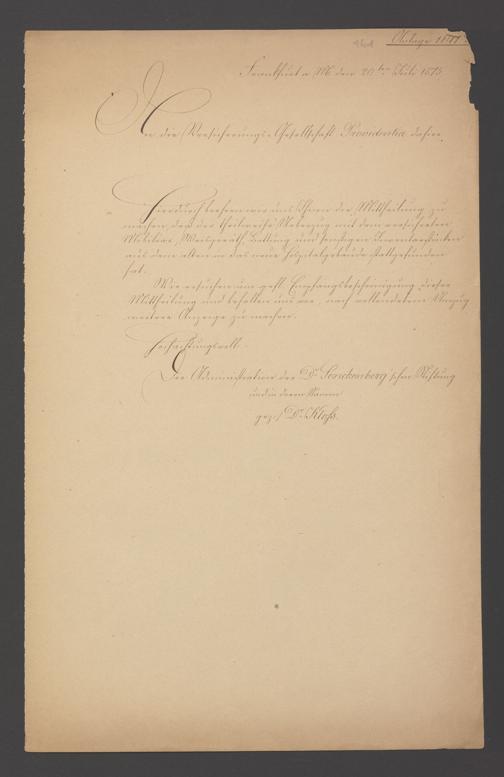 Anlage 1877.
Frankfurt a M den 20ten Juli 1875
An die Versicherungs-Gesellschaft Providentia dahier.
Hierdurch beehren wir uns Ihnen die Mittheilung zu
machen, daß der theilweise Umzug mit dem versicherten
Mobiliar, Weisgeräth, Bettung und sonstigen Inventarstücken
aus dem alten in das neue Hospitalgebäude stattgefunden
hat.
Wir ersuchen um gefl. Empfangsbescheinigung dieser
Mittheilung und behalten uns vor, nach vollendetem Umzug
weitere Anzeige zu machen.
Hochachtungsvoll.
Die Administration der Dr. Senckenberg'schen Stiftung
und in deren Namen
gez. Dr. Kloß.